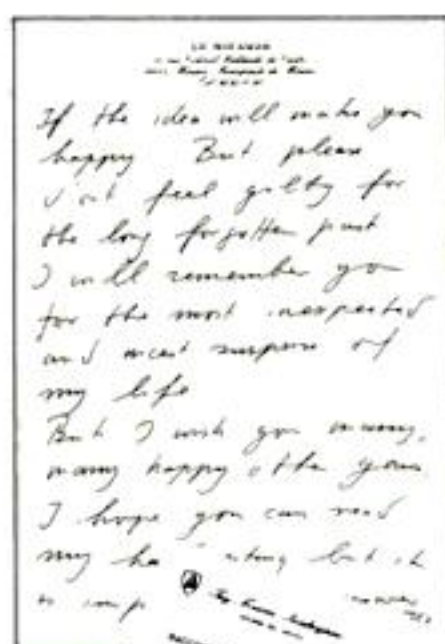 LE MIRAMAR
If the idea will make you
happy But please
don't feel gilty for
the long forgotten past
I will remember you
for the most inexpected
and nicest surprise of
my life
But I wish you many,
many happy other years
I hope you can read
my but it
is